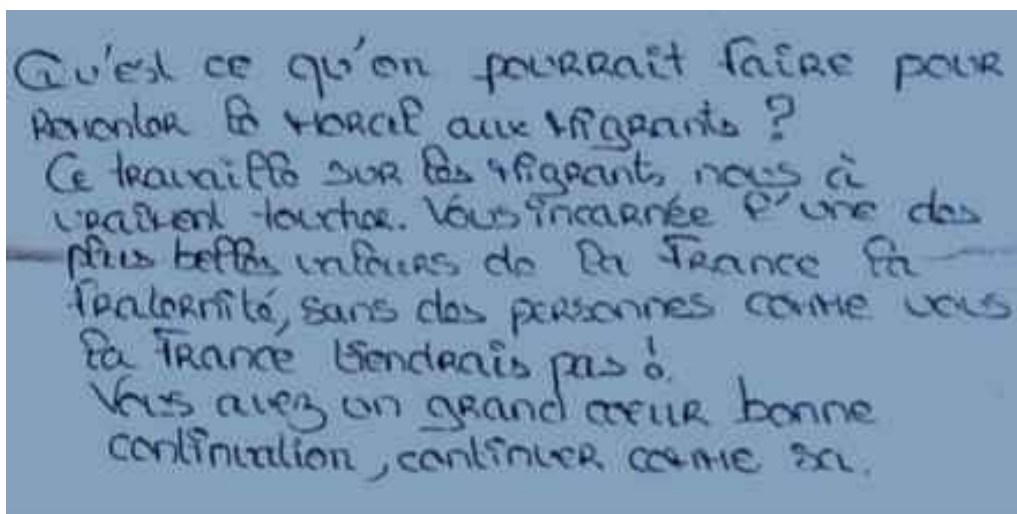 Qu'est ce qu'on pourrait faire pour
remonter le morale aux migrants ?
Ce travaille sur les migrants nous à
vraiment toucher. Vous incarnée l'une des
plus belles valeurs de la France la
fraternité, sans des personnes comme vous
la France tiendrais pas !
Vous avez un grand cœur bonne
continuation, continuer comme sa.